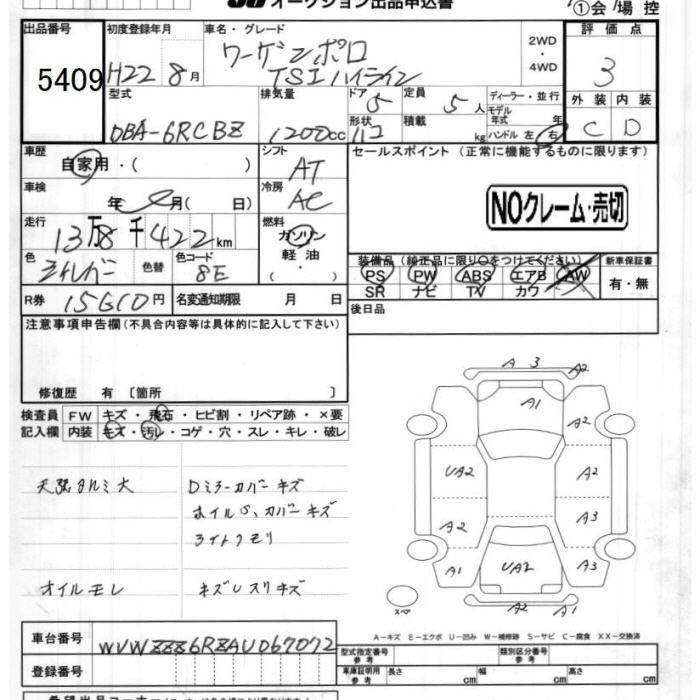 オークション出品申込書
①会場控
出品番号 初度登録年月 車名・グレード 評価点
5409 H22 8月 ワーゲンポロ 2WD 3
TSIハイライン ・4WD
型式 排気量 ドア 5 定員 5人 ディーラー・並行 外装 内装
モデル年式 年
DBA-6RCBZ 1200cc 形状 積載 kg ハンドル 左・右 C D
車歴 シフト セールスポイント (正常に機能するものに限ります)
自家用・( ) AT
車検 冷房 NOクレーム・売切
年 月( 日) AC
走行 燃料
13万8千422km ガソリン
軽油 装備品 (純正品に限り○をつけてください) 新車保証書
色 色替 色コード ・( ) PS PW ABS エアB AW 有・無
シルバー 8E SR ナビ TV カワ
R券 15610円 名変通知期限 月 日 後日品
注意事項申告欄 (不具合内容等は具体的に記入して下さい)
修復歴 有 〔箇所 〕
検査員 FW キズ・飛石・ヒビ割・リペア跡・×要
記入欄 内装 キズ・汚レ・コゲ・穴・スレ・キレ・破レ
天張タルミ大 Dミラーカバーキズ
ホイルS、カバーキズ
ライトクモリ
オイルモレ キズUスリキズ
A 3 A2
A1 A2
UA2 A2
A2 A3
A1 UA2 A3
A2 A1
スペア
A-キズ E-エクボ U-凹み W-補修跡 S-サビ C-腐食 XX-交換済
車台番号 WVWZZZ6RZAU067072
型式指定番号 参考 類別区分番号 参考
登録番号 車庫証明用 参考 長さ cm 幅 cm 高さ cm